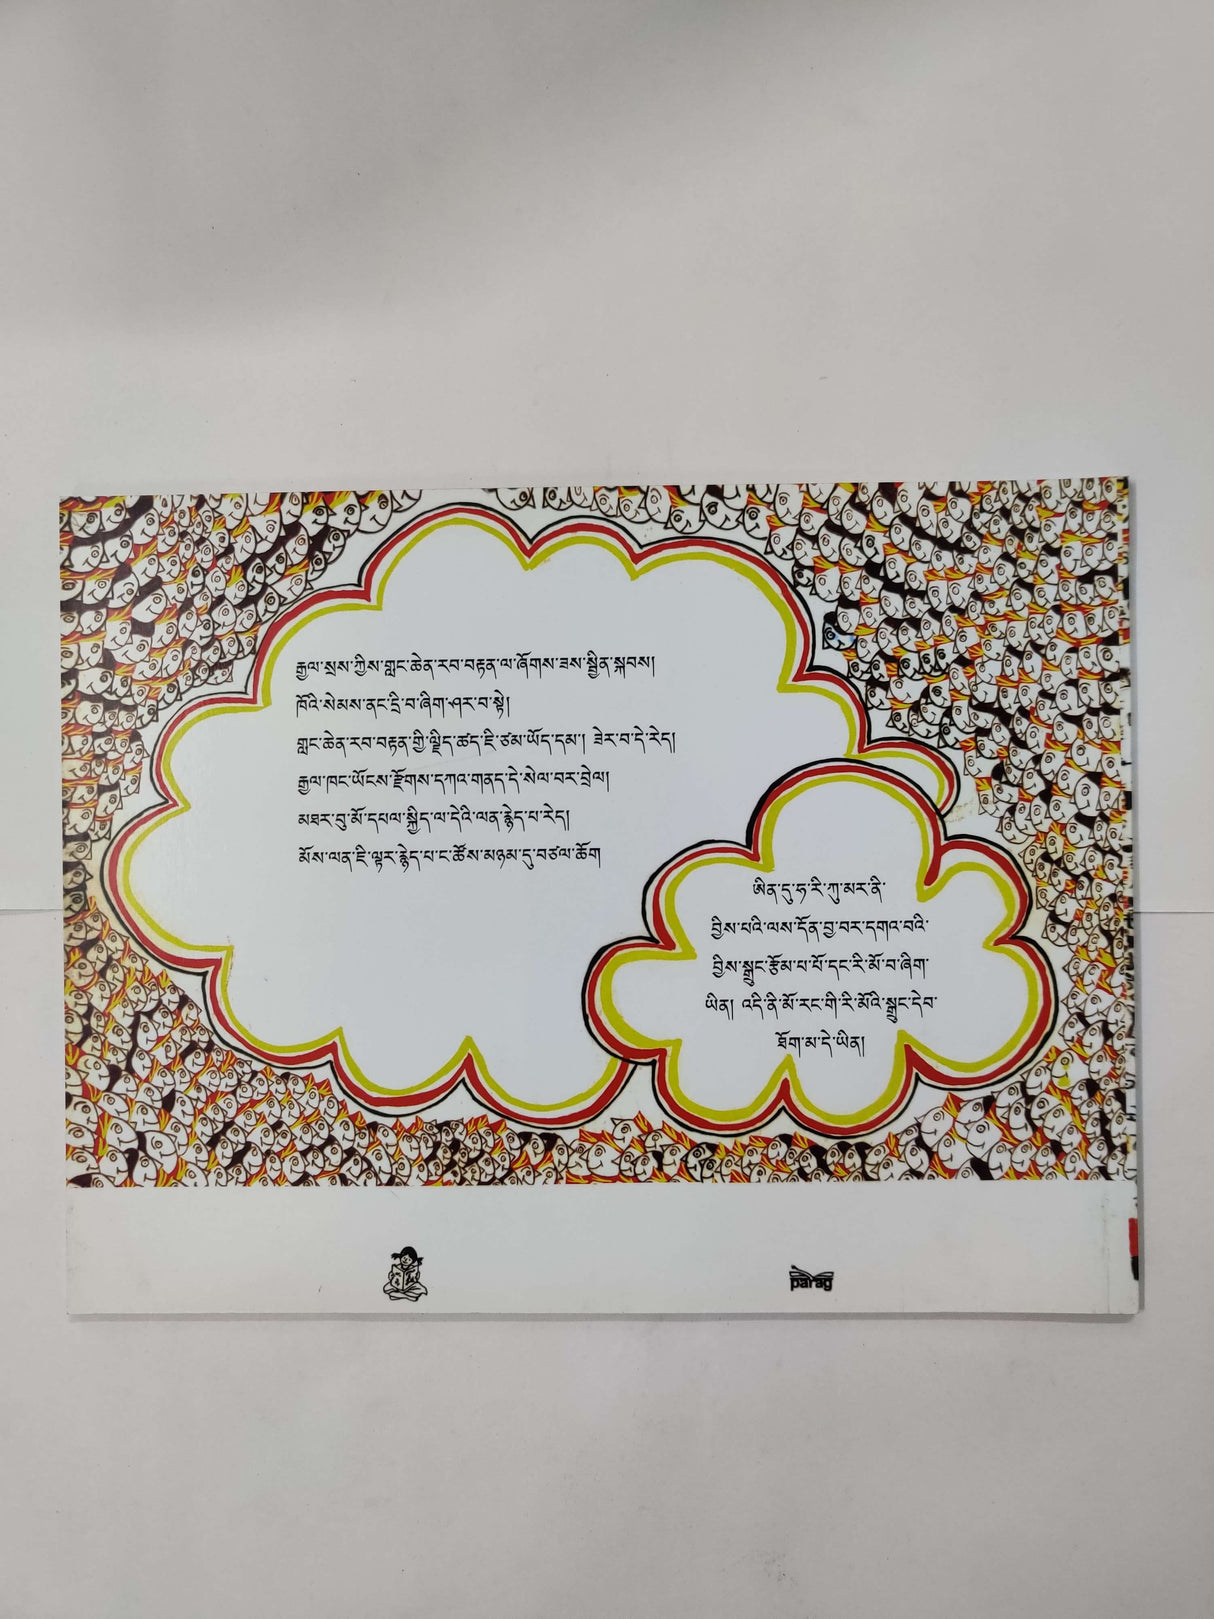 རྒྱལ་སྲས་ཀྱིས་གླང་ཆེན་རབ་བརྟན་ལ་ཞོགས་ཟས་སྦྱིན་སྐབས།
ཁོའི་སེམས་ནང་དྲི་བ་ཞིག་ཤར་བ་སྟེ།
གླང་ཆེན་རབ་བརྟན་གྱི་ལྗིད་ཚད་ཇི་ཙམ་ཡོད་དམ་། ཟེར་བ་དེ་རེད།
རྒྱལ་ཁང་ཡོངས་རྫོགས་དཀའ་གནད་དེ་སེལ་བར་བྲེལ།
མཐར་བུ་མོ་དཔལ་སྐྱིད་ལ་དེའི་ལན་རྙེད་པ་རེད།
མོས་ལན་ཇི་ལྟར་རྙེད་པ་ང་ཚོས་མཉམ་དུ་བཙལ་ཆོག
ཨིན་དུ་ཧ་རི་ཀུ་མར་ནི་
བྱིས་པའི་ལས་དོན་བྱ་བར་དགའ་བའི་
བྱིས་སྒྲུང་རྩོམ་པ་པོ་དང་རི་མོ་བ་ཞིག་
ཡིན། འདི་ནི་མོ་རང་གི་རི་མོའི་སྒྲུང་དེབ་
ཐོག་མ་དེ་ཡིན།
parag